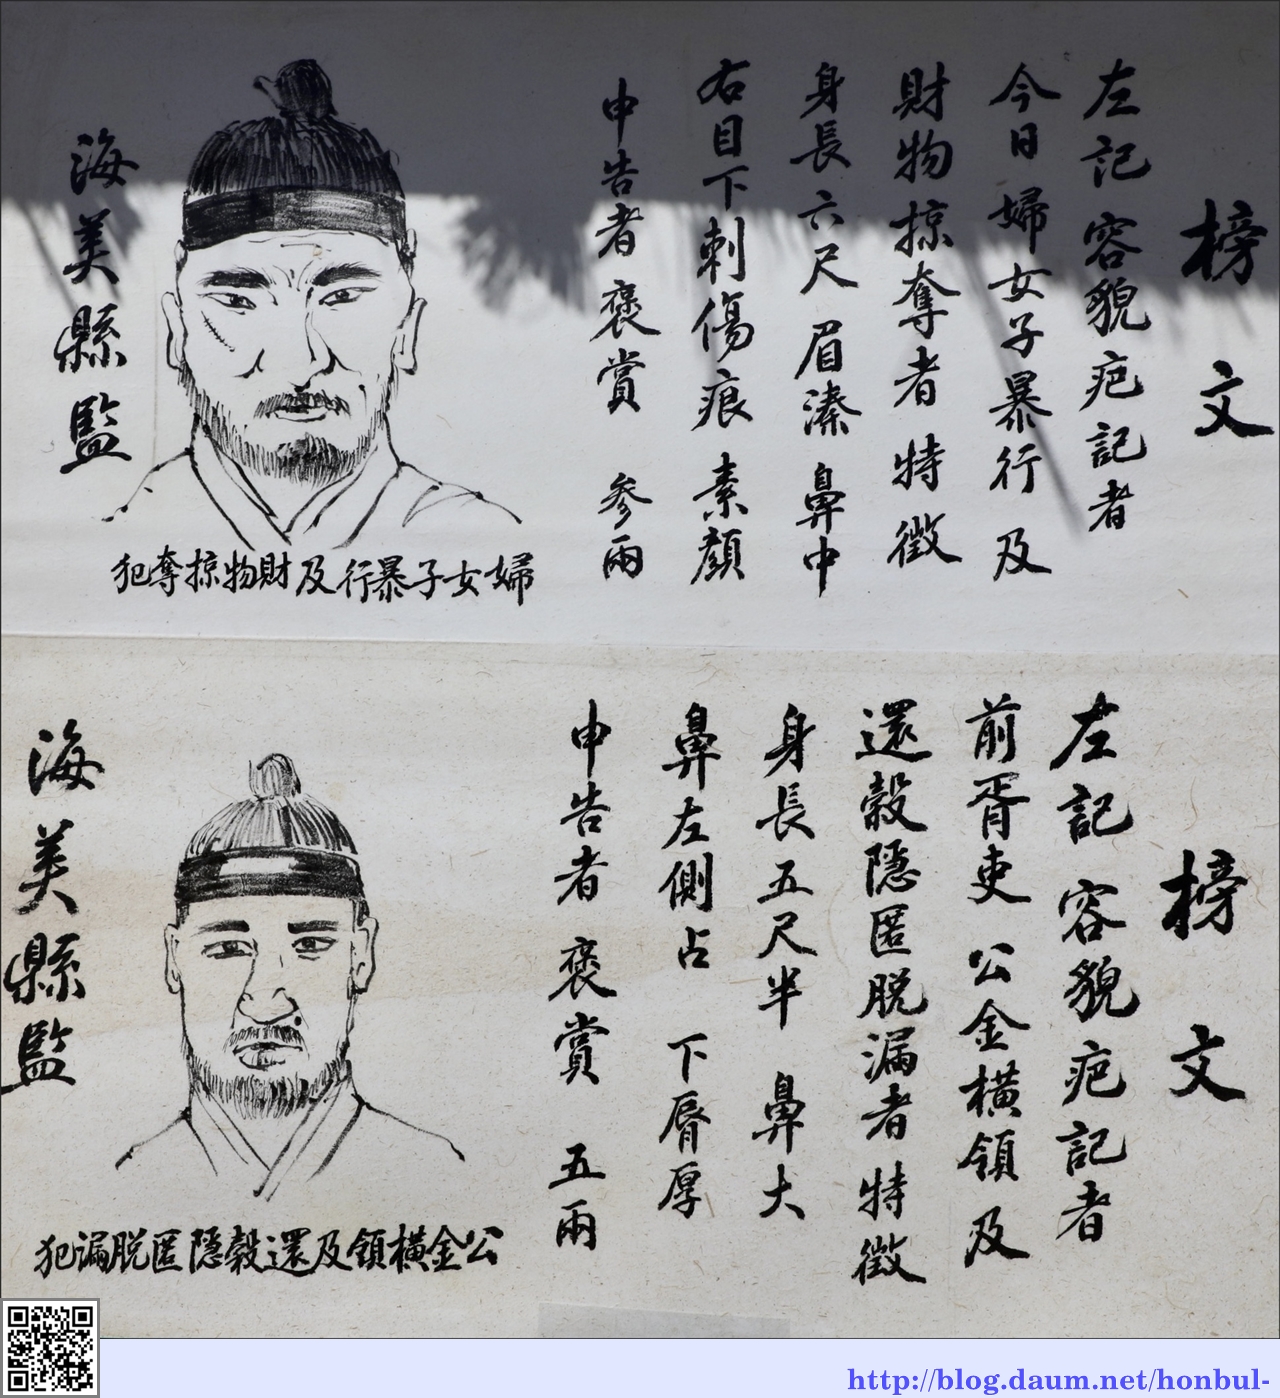 榜文
左記 容貌疤記者
今日 婦女子暴行 及
財物掠奪者 特徵
身長六尺 眉溱 鼻中
右目下刺傷痕 素顔
申告者 褒賞 参兩
婦女子暴行及財物掠奪犯
海美縣監
榜文
左記 容貌疤記者
前胥吏 公金橫領 及
還穀隱匿脱漏者 特徵
身長五尺半 鼻大
鼻左側占 下脣厚
申告者 褒賞 五兩
公金橫領及還穀隱匿脱漏犯
海美縣監
http://blog.daum.net/honbul-